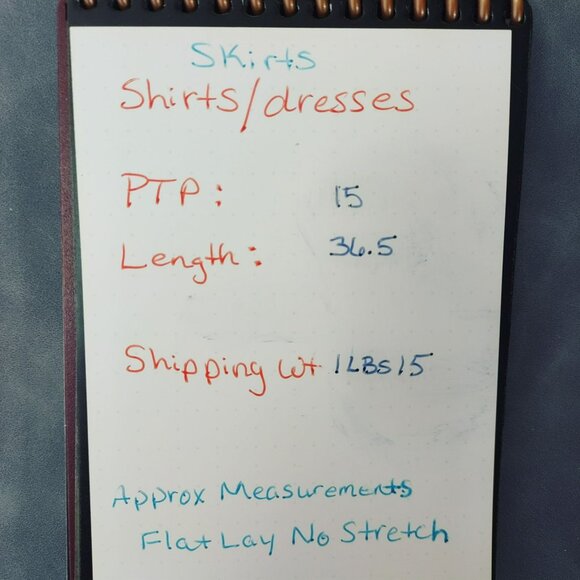 Skirts
Shirts/dresses
PTP: 15
Length: 36.5
Shipping wt 1LBS15
Approx Measurements
Flat Lay No Stretch